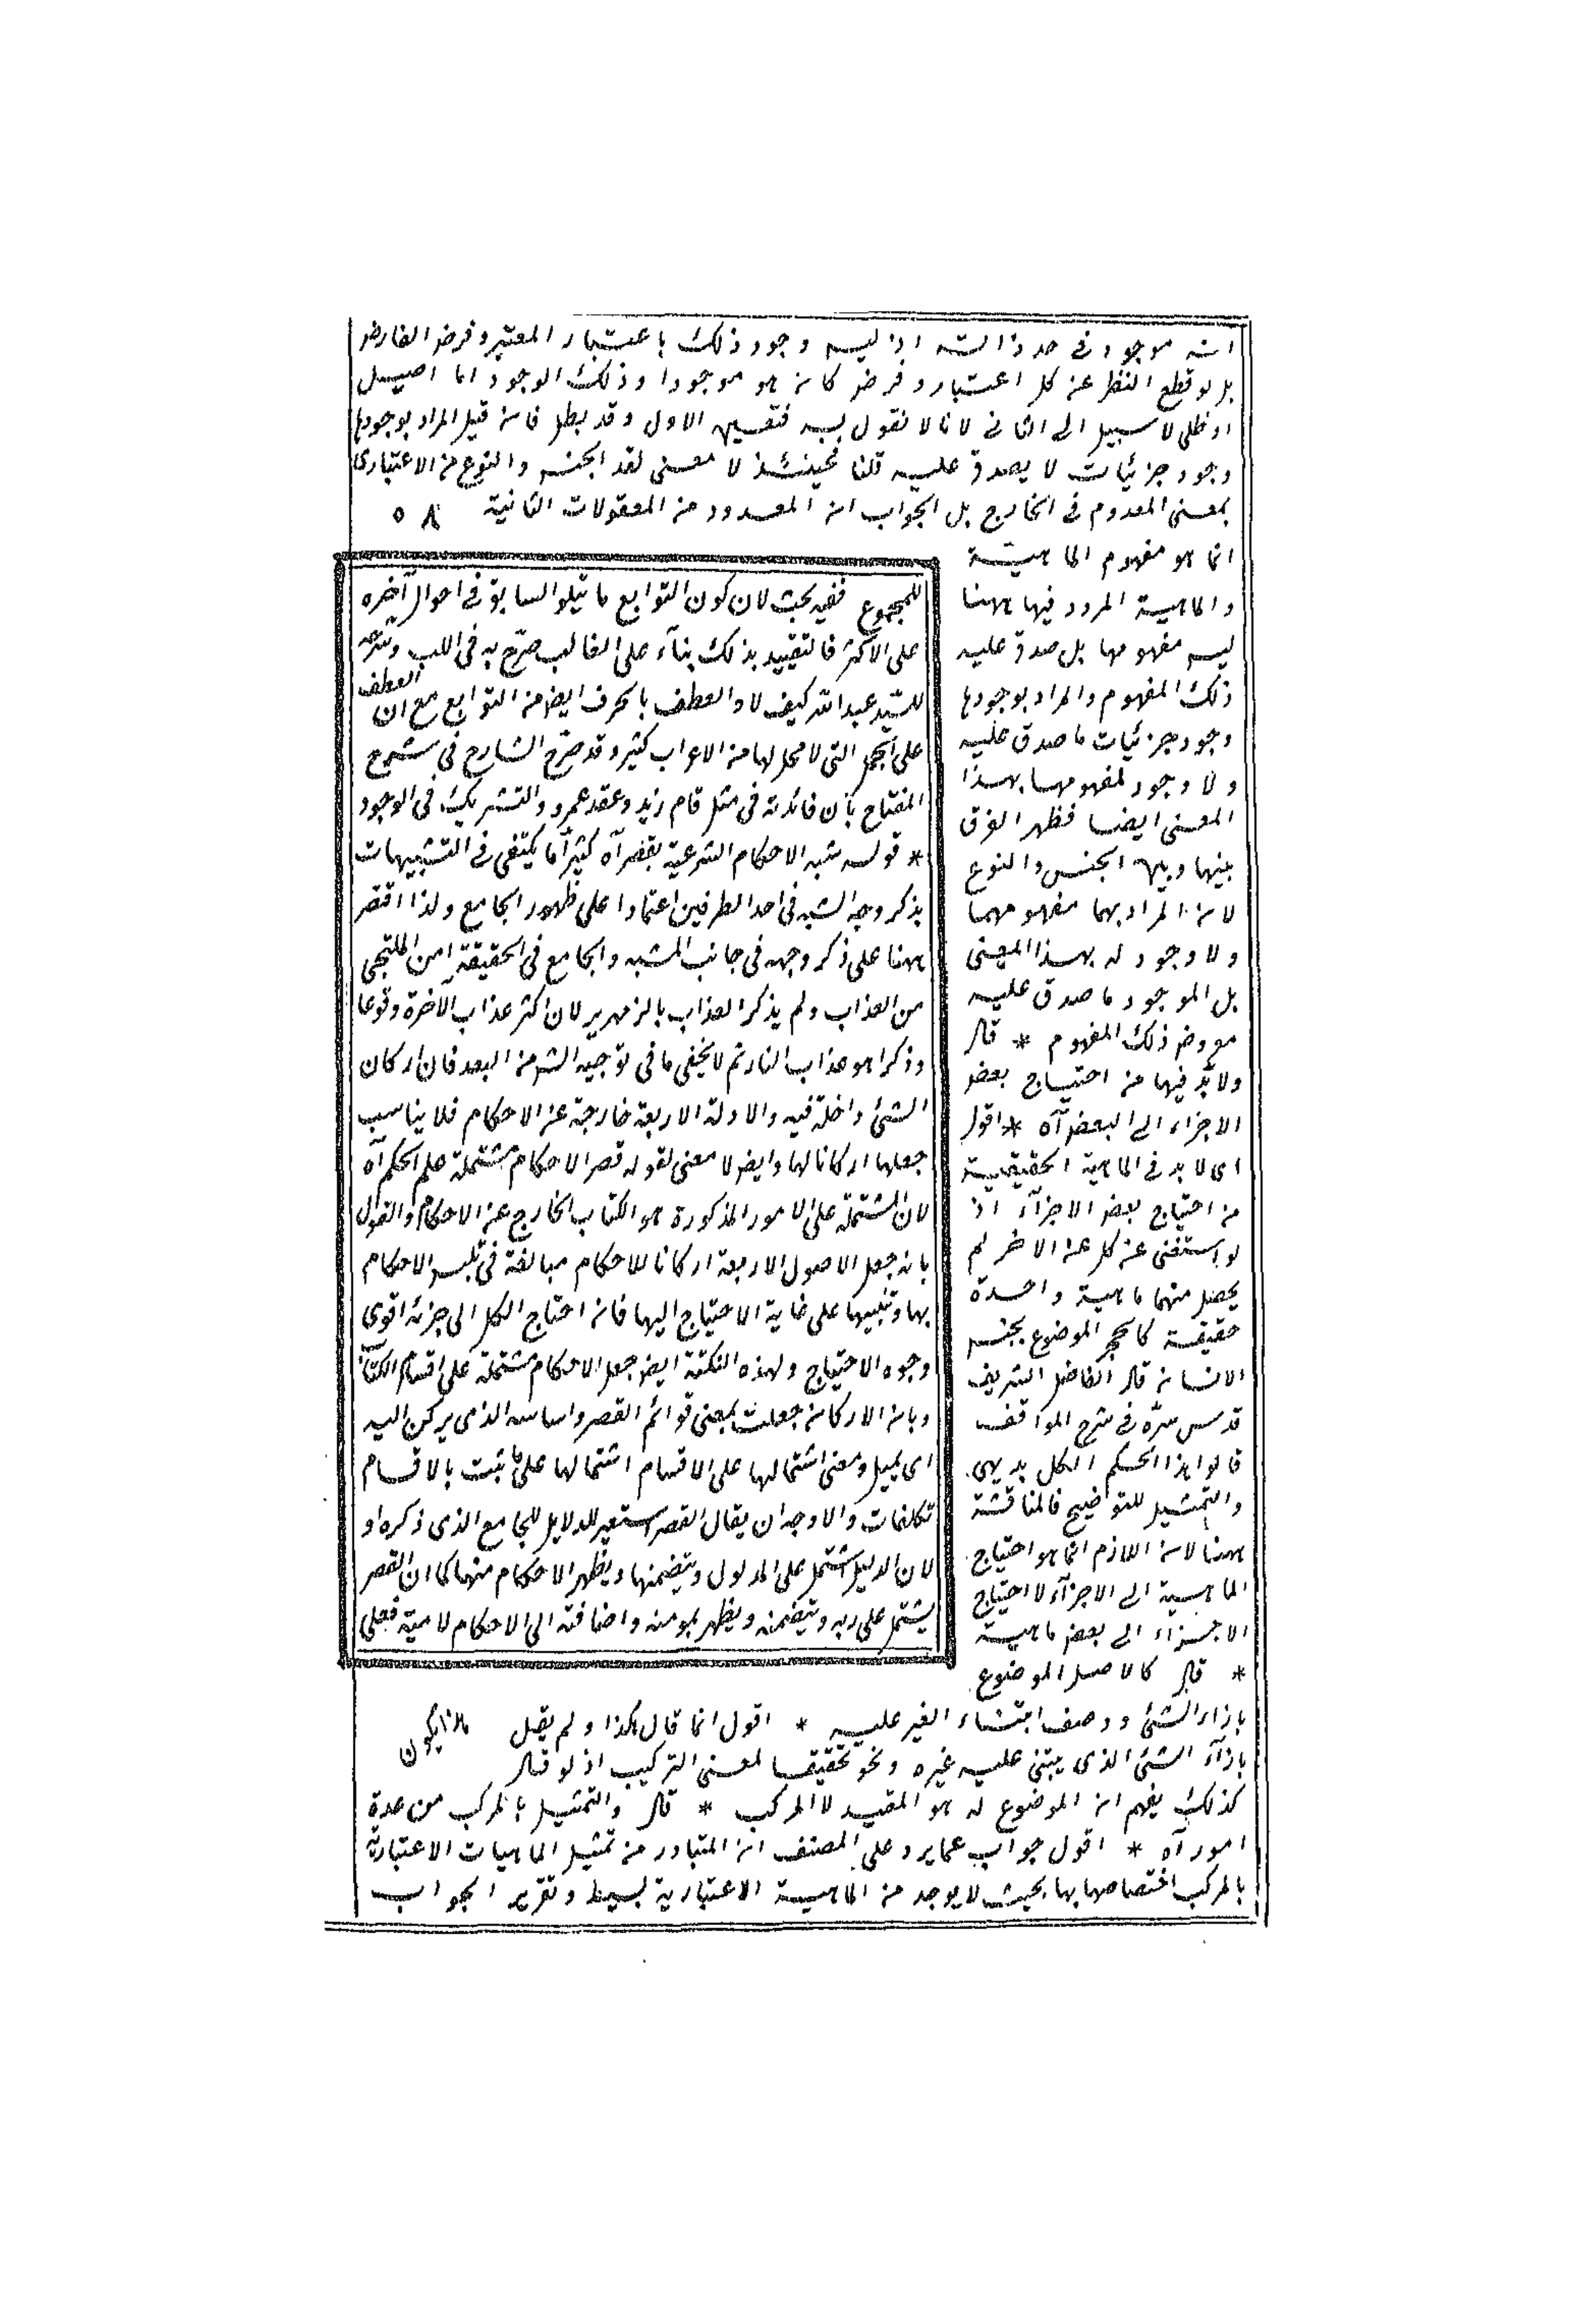 انه موجود فى حد ذاته اذ ليس وجود ذلك باعتبار المعتبر وفرض الفارض
بل لو قطع النظر عن كل اعتبار وفرض كان هو موجودا وذلك الوجود اما اصيل
او ظلى لا سبيل الى الثانى لانا لا نقول به فتعين الاول وقد بطل فان قيل المراد بوجودها
وجود جزئيات لا يصدق عليه قلنا فحينئذ لا معنى لعد الجنس والنوع من الاعتبارى
بمعنى المعدوم فى الخارج بل الجواب ان المعدود من المعقولات الثانية ٥٨
انما هو مفهوم الماهية
والماهية المردد فيها ههنا
ليس مفهومها بل صدق عليه
ذلك المفهوم والمراد بوجودها
وجود جزئيات ما صدق عليه
ولا وجود لمفهومها بهذا
المعنى ايضا فظهر الفرق
بينها وبين الجنس والنوع
لان المراد بهما مفهومهما
ولا وجود له بهذا المعنى
بل الموجود ما صدق عليه
معروض ذلك المفهوم * قال
ولا بد فيها من احتياج بعض
الاجزاء الى البعض آه * اقول
اى لا بد فى الماهية الحقيقية
من احتياج بعض الاجزآء اذ
لو استغنى عن كل عن الاخر لم
يحصل منهما ماهية واحدة
حقيقة كالحجر الموضوع بجنب
الانسان قال الفاضل الشريف
قدس سره فى شرح المواقف
قالوا هذا الحكم الكلى بديهى
والتمثيل للتوضيح فالمناقشة
ههنا لان اللازم انما هو احتياج
الماهية الى الاجزآء لا احتياج
الاجزاء الى بعض ماهية
* قال كالاصل الموضوع
بازاء الشئ ووصف ابتناء الغير عليه * اقول انما قال هكذا ولم يقل
بازآء الشئ الذى يبتنى عليه غيره ونحو تحقيقا لمعنى التركيب اذ لو قال
كذلك يفهم ان الموضوع له هو المقيد لا المركب * قال والتمثيل بالمركب من عدة
امور آه * اقول جواب عما يرد على المصنف ان المتبادر من تمثيل الماهيات الاعتبارية
بالمركب اختصاصها بها بحيث لا يوجد من الماهية الاعتبارية بسيط وتقرير الجواب
للمجموع ففيه بحث لان كون التوابع ما يتلو السابق فى احوال آخره
على الاكثر فالتقييد بذلك بناء على الغالب صرح به فى اللب وشرحه
للسيد عبد الله كيف لا والعطف بالحرف ايضا من التوابع مع ان العطف
على الجمل التى لا محل لها من الاعراب كثير وقد صرح الشارح فى شرح
المفتاح بان فائدته فى مثل قام زيد وعقد عمرو والتشريك فى الوجود
* قوله شبه الاحكام الشرعية بقصر آه كثيرا ما يكتفى فى التشبيهات
بذكر وجه الشبه فى احد الطرفين اعتمادا على ظهور الجامع ولذا اقتصر
ههنا على ذكر وجهه فى جانب المشبه والجامع فى الحقيقة امن الملتجى
من العذاب ولم يذكر العذاب بالزمهرير لان اكثر عذاب الآخرة وقوعا
وذكرا هو عذاب النار ثم لا يخفى ما فى توجيه الشر من البعد فان اركان
الشئ داخلة فيه والادلة الاربعة خارجة عن الاحكام فلا يناسب
جعلها اركانا لها وايضا لا معنى لقوله قصر الاحكام مشتملة على الحكم آه
لان المشتملة على الامور المذكورة هو الكتاب الخارج عن الاحكام والقول
بانه جعل الاصول الاربعة اركانا للاحكام مبالغة فى تلبس الاحكام
بها وتنبيها على غاية الاحتياج اليها فان احتياج الكل الى جزئه اقوى
وجوه الاحتياج ولهذه النكتة ايضا جعل الاحكام مشتملة على اقسام الكتاب
وبان الاركان جعلت بمعنى قوائم القصر واساسه الذى يركن اليه
اى يميل ومعنى اشتمالها على الاقسام اشتمالها على ما ثبت بالاقسام
تكلفات والاوجه ان يقال القصر استعير للدلايل للجامع الذى ذكره او
لان الدليل اشتمل على المدلول ويتضمنها ويظهر الاحكام منهما كما ان القصر
يشتمل على ربه ويتضمنه ويظهر بمومنه واضافته الى الاحكام لامية فعلى
هذا يكون